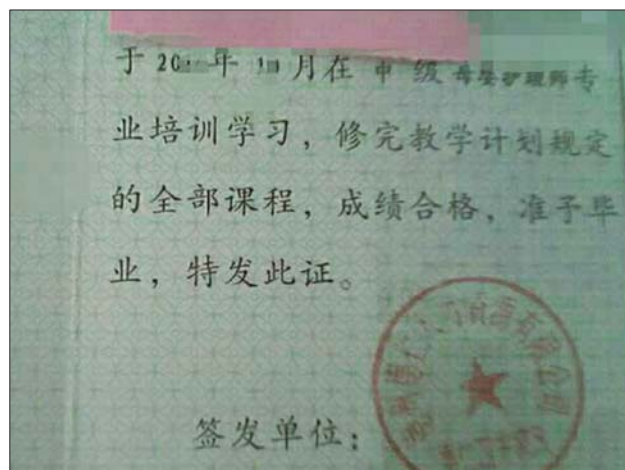 于20 年 月在中级母婴护理师专
业培训学习，修完教学计划规定
的全部课程，成绩合格，准予毕
业，特发此证。
签发单位：